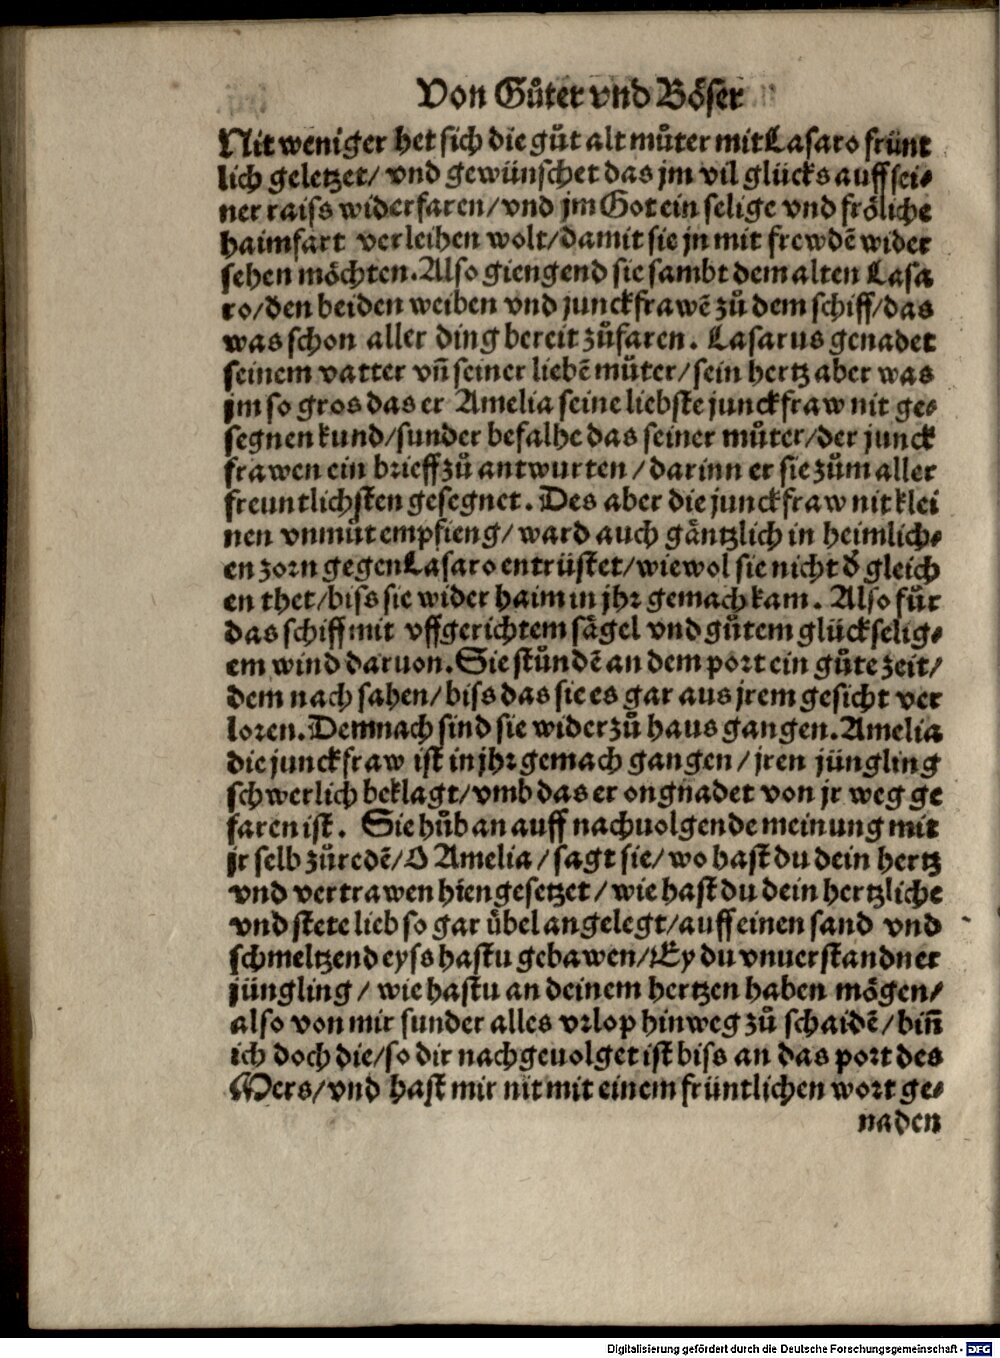 Von Gůter vnd Böser
Nit weniger het sich die gůt alt můter mit Lasaro frünt
lich geletzet/ vnd gewünschet das jm vil glücks auff sei⸗
ner raiss widerfaren/vnd jm Got ein selige vnd fröliche
haimfart verleihen wolt/damit sie jn mit frewdē wider
sehen möchten. Also giengend sie sambt dem alten Lasa
ro/den beiden weiben vnd junckfrawē zů dem schiff/das
was schon aller ding bereit zůfaren. Lasarus genadet
seinem vatter vñ seiner liebē můter/sein hertz aber was
jm so gros das er Amelia seine liebste junckfraw nit ge⸗
segnen kund/sunder befalhe das seiner můter/der junck
frawen ein brieff zů antwurten/darinn er sie zům aller
freuntlichsten gesegnet. Des aber die junckfraw nit klei
nen vnmůt empfieng/ ward auch gäntzlich in heimlich⸗
en zorn gegen Lasaro entrüstet/wiewol sie nicht d̕ gleich
en thet/biss sie wider haim in jhr gemach kam. Also fůr
das schiff mit vffgerichtem sägel vnd gůtem glückselig⸗
em wind daruon. Sie stůndē an dem port ein gůte zeit/
dem nach sahen/biss das sie es gar aus jrem gesicht ver
loren. Demnach sind sie wider zů haus gangen. Amelia
die junckfraw ist in jhr gemach gangen/jren jüngling
schwerlich beklagt/vmb das er ongnadet von jr weg ge
faren ist. Sie hůb an auff nachuolgende meinung mit
jr selb zůredē/O Amelia/sagt sie/wo hast du dein hertz
vnd vertrawen hien gesetzet/wie hast du dein hertzliche
vnd stete lieb so gar übel angelegt/auff einen sand vnd
schmeltzend eyss hastu gebawen/Ey du vnuerstandner
jüngling/wie hastu an deinem hertzen haben mögen/
also von mir sunder alles vrlop hinweg zů schaidē/biñ
ich doch die/so dir nachgeuolget ist biss an das port des
Mers/vnd hast mir nit mit einem früntlichen wort ge⸗
naden
Digitalisierung gefördert durch die Deutsche Forschungsgemeinschaft - DFG